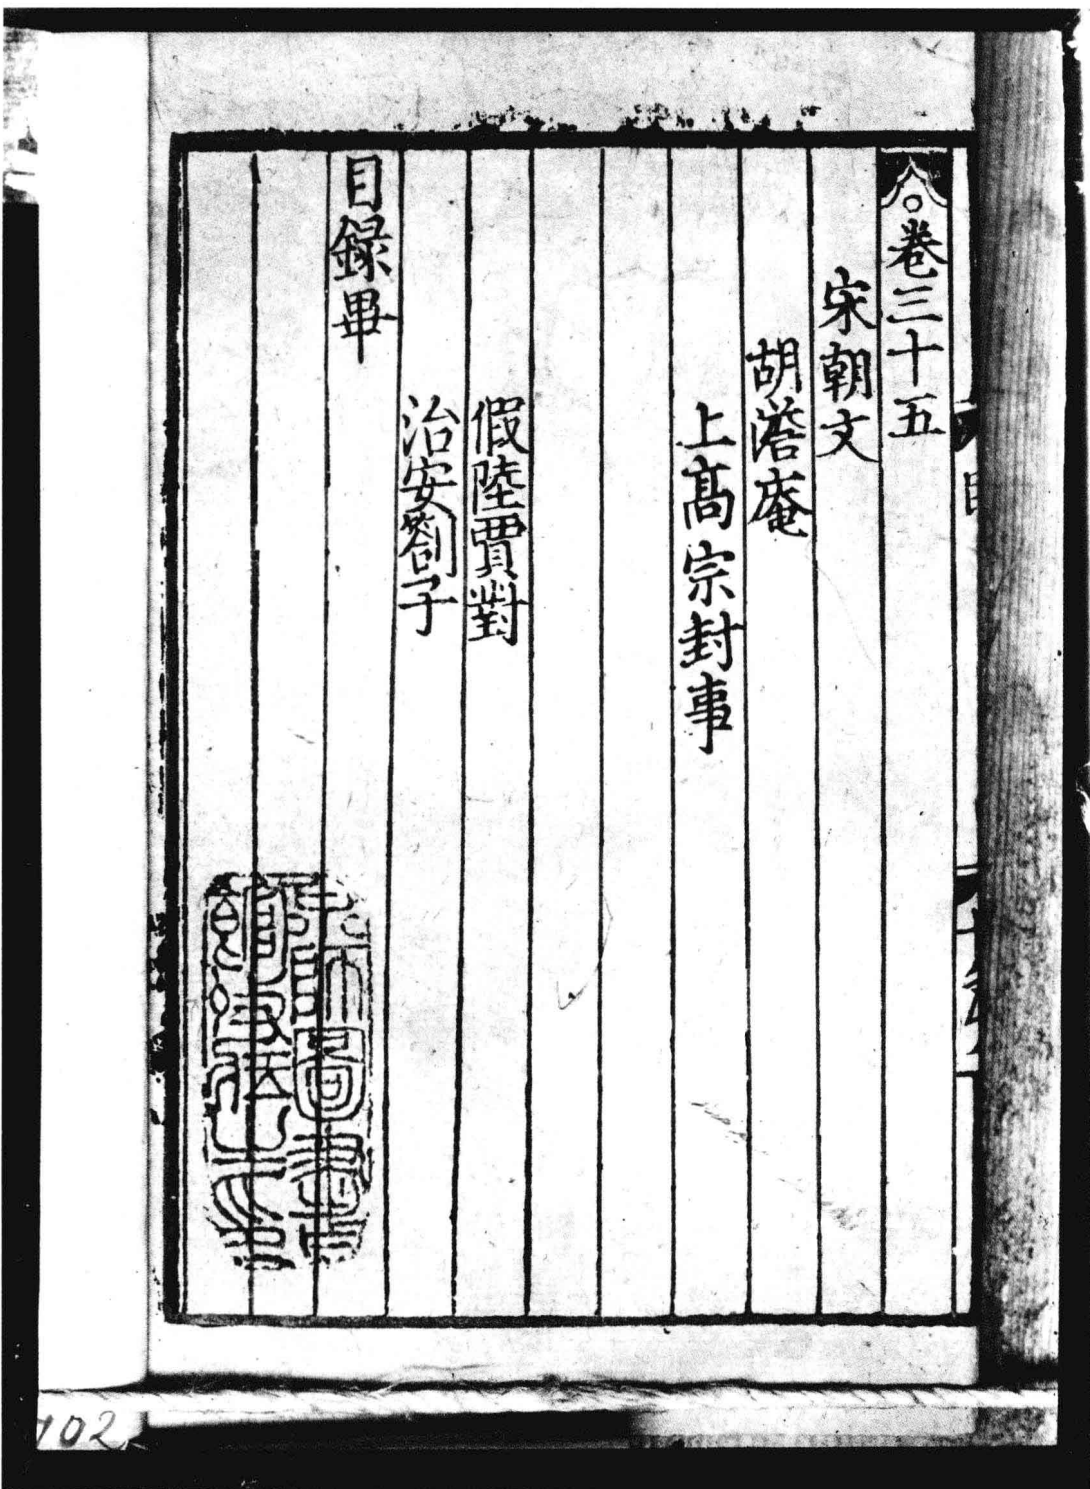 卷三十五
宋朝文
胡澹庵
上高宗封事
假陸賈對
治安劄子
目録畢
102